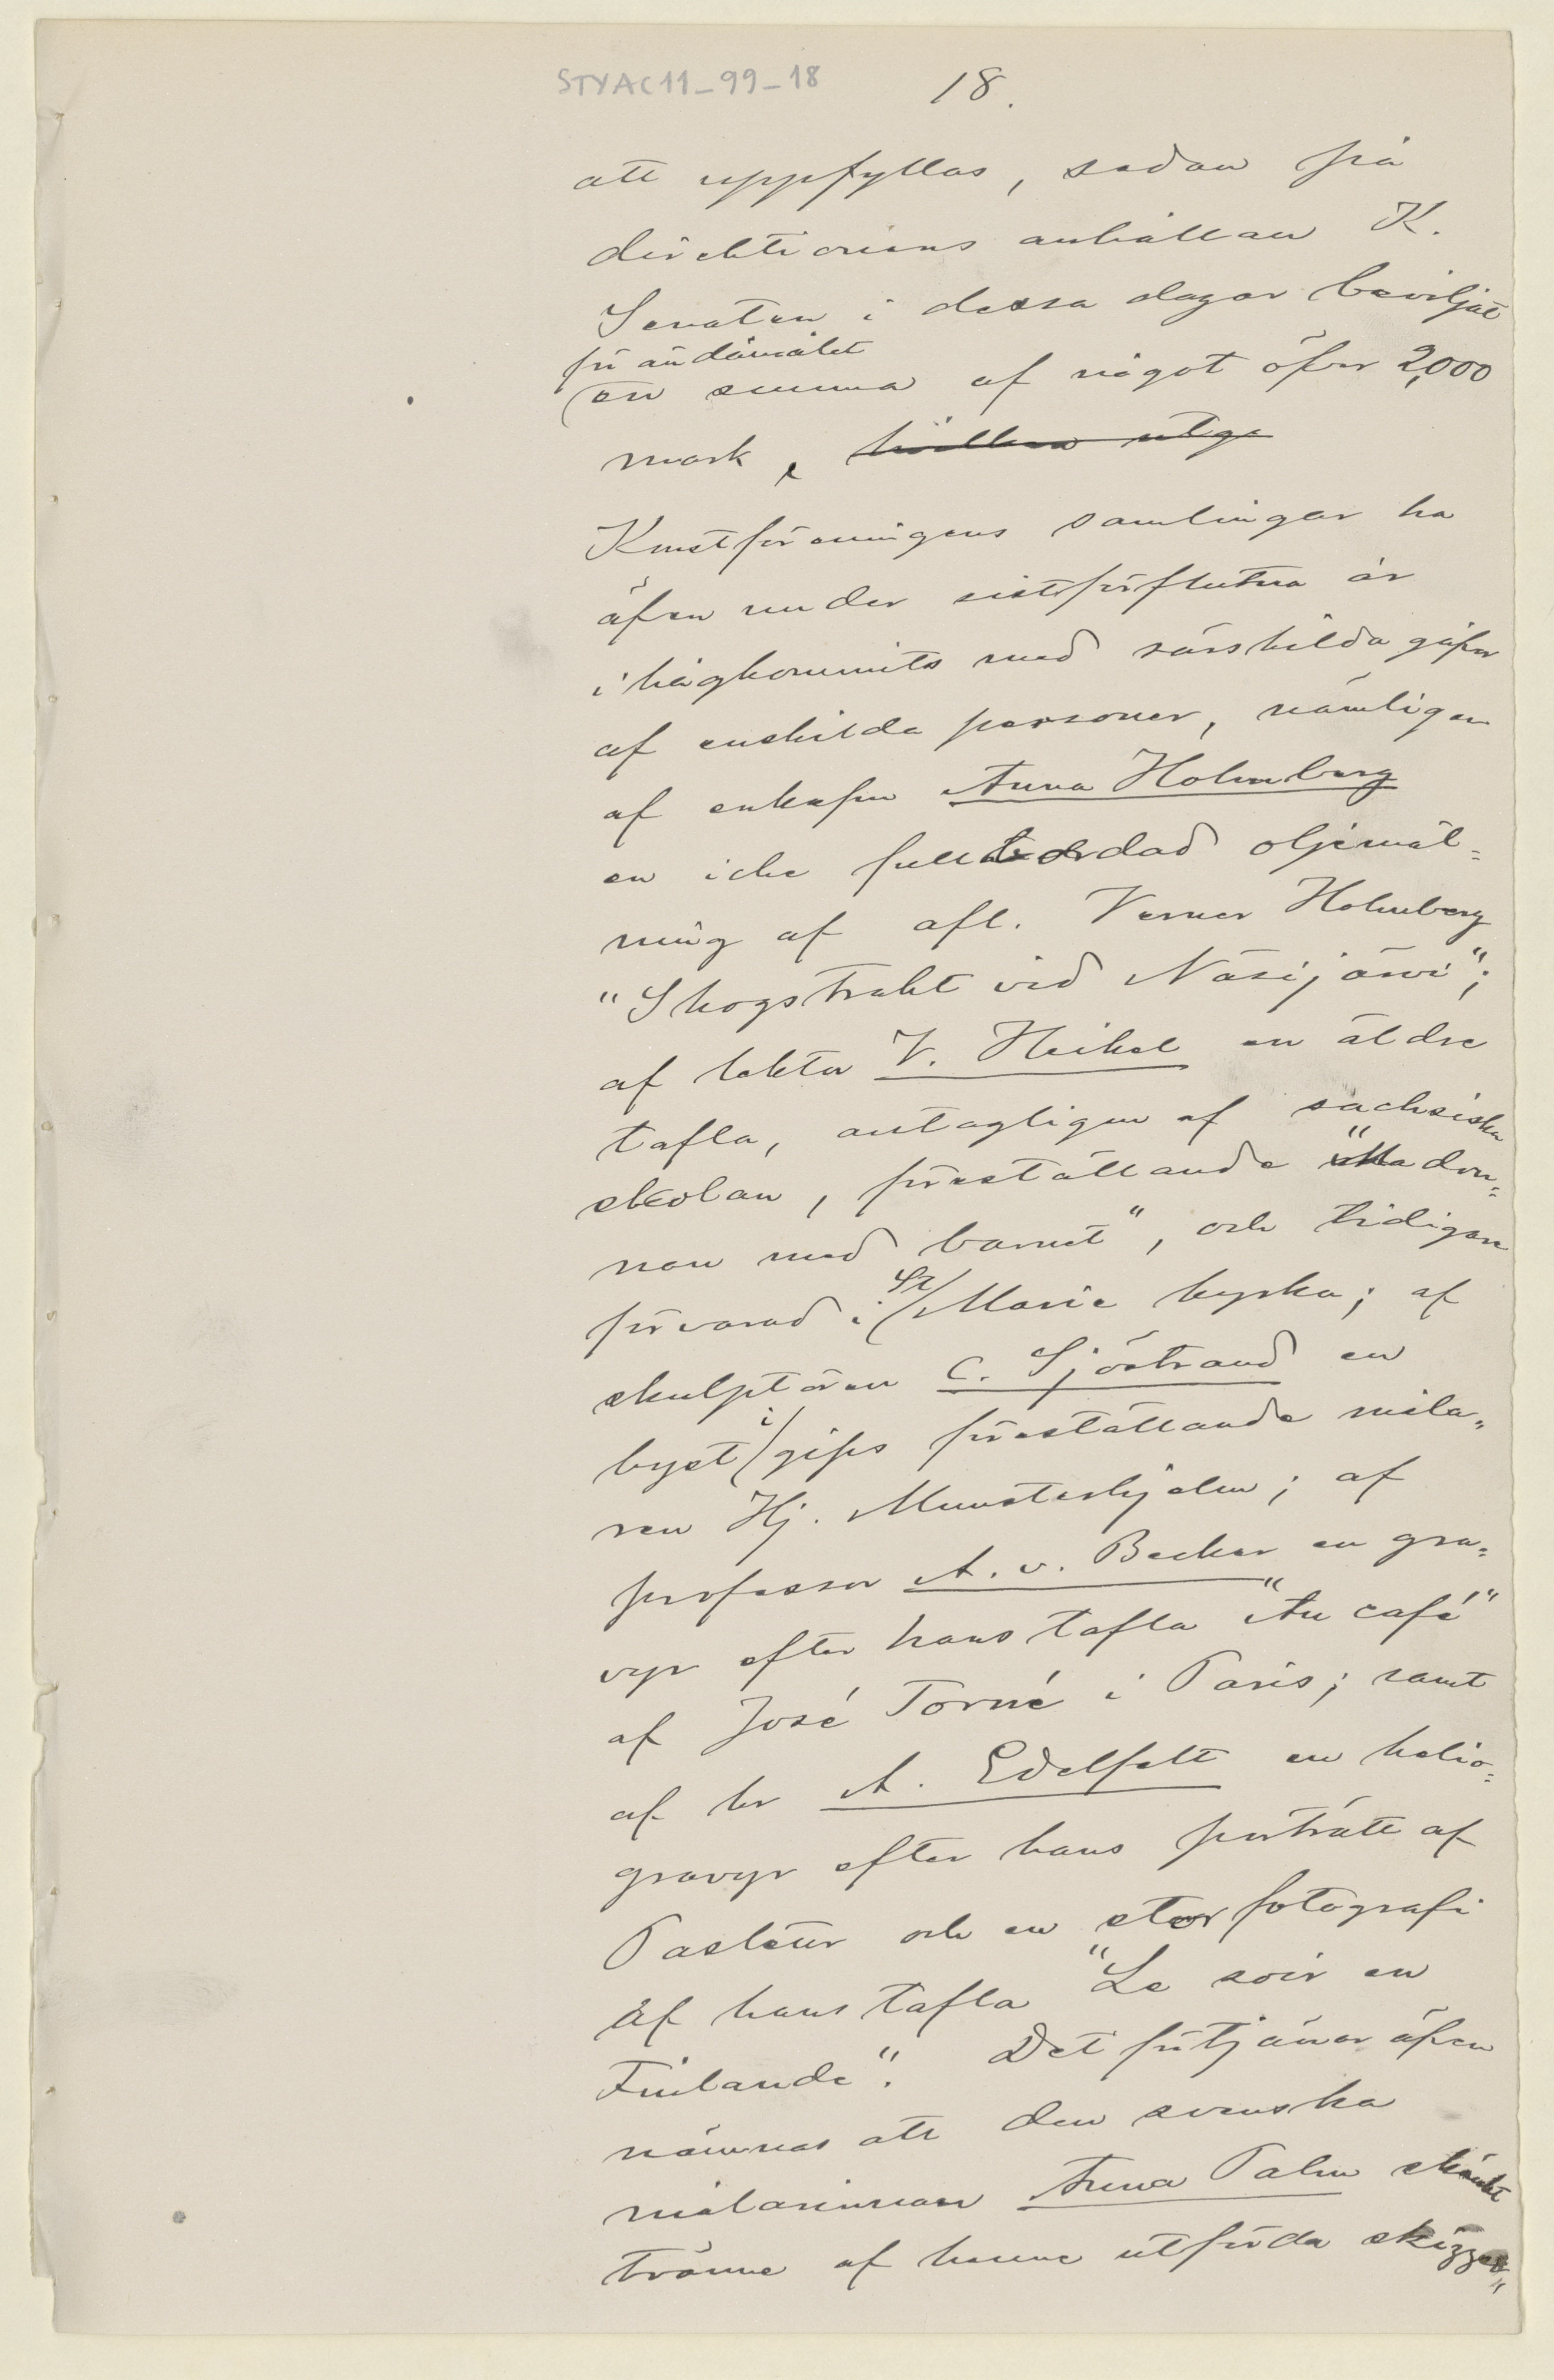 STYAC11_99_18 18.
att uppfyllas, sedan på
direktionens anhållan K.
Senaten i dessa dagar beviljat
för ändamålet
en summa af något öfver 2,000
mark,
Konstföreningens samlingar ha
äfven under sistförflutna år
ihågkommits med särskilda gåfvor
af enskilda personer, nämligen
af enkefru Anna Holmberg
en icke fullbordad oljemål=
ning af afl. Verner Holmberg
"Skogstrakt vid Näsijärvi";
af lektor V. Heikel en äldre
tafla, antagligen af sachsiska
skolan, föreställande "Madon=
nan med barnet", och tidigare
förvarad i St Marie kyrka; af
skulptören C. Sjöstrand en
byst i gips föreställande måla=
ren Hj. Munsterhjelm; af
professor A. v. Becker en gra=
vyr efter hans tafla "Au café"
af José Torné i Paris; samt
af hr A. Edelfelt en helio=
gravyr efter hans porträtt af
Pasteur och en stor fotografi
af hans tafla "Le soir en
Finlande". Det förtjänar äfven
nämnas att den svenska
målarinnan Anna Palm skänkt
tränne af henne utförda skizzer